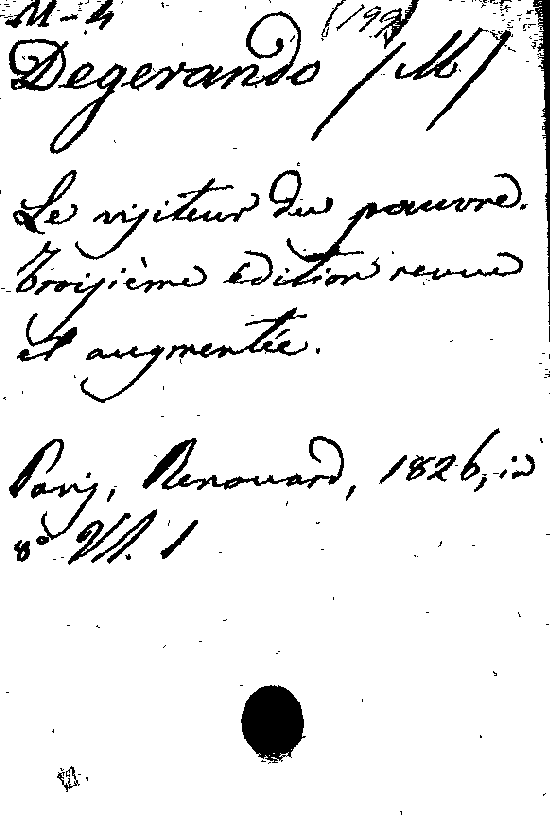 M-4 (199)
Degerando /M/
Le visiteur du pauvre.
Troisième édition revue
et augmentée.
Paris, Renouard, 1826, in
8° Vl. 1